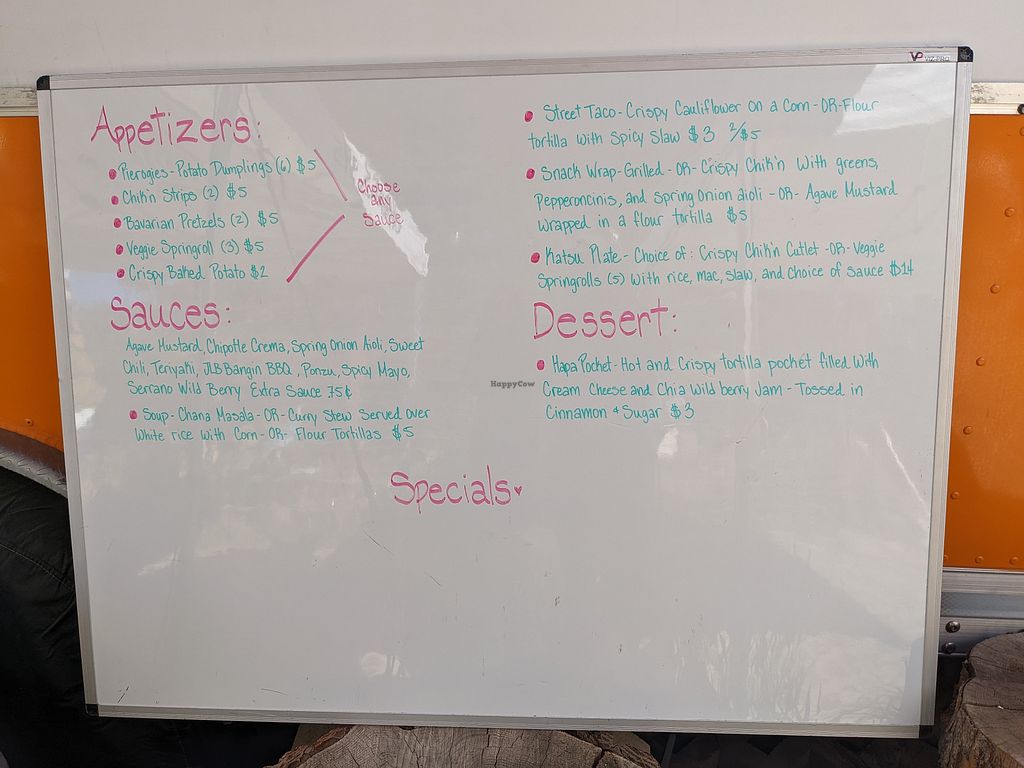 Appetizers:
Pierogies-Potato Dumplings (6) $5
Chik'n Strips (2) $5
Bavarian Pretzels (2) $5
Veggie Springroll (3) $5
Crispy Baked Potato $2
Choose
any
Sauce
Sauces:
Agave Mustard, Chipotle Crema, Spring Onion Aioli, Sweet
Chili, Teriyaki, JLB Bangin BBQ, Ponzu, Spicy Mayo,
Serrano Wild Berry Extra Sauce 75¢
Soup-Chana Masala-OR-Curry Stew Served over
White rice with Corn-OR-Flour Tortillas $5
Street Taco-Crispy Cauliflower on a Corn-OR-Flour
tortilla with Spicy Slaw $3 2/$5
Snack Wrap-Grilled-OR-Crispy Chik'n with greens,
Pepperoncinis, and Spring Onion aioli-OR-Agave Mustard
wrapped in a flour tortilla $5
Katsu Plate-Choice of: Crispy Chik'n Cutlet-OR-Veggie
Springrolls (5) with rice, mac, slaw, and choice of sauce $14
Dessert:
Hapa Pocket-Hot and Crispy tortilla pocket filled with
Cream Cheese and Chia Wild berry Jam-Tossed in
Cinnamon & Sugar $3
HappyCow
Specials